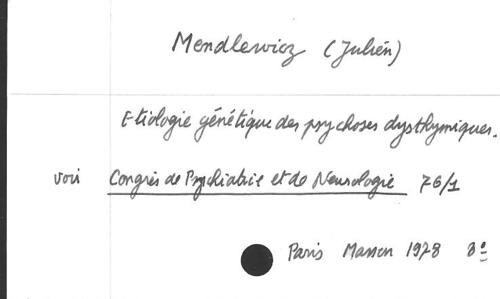 Mendlewicz (Julien)
Etiologie génétique des psychoses dysthymiques.
voir Congrès de Psychiatrie et de Neurologie 76/1
Paris Masson 1978 8º